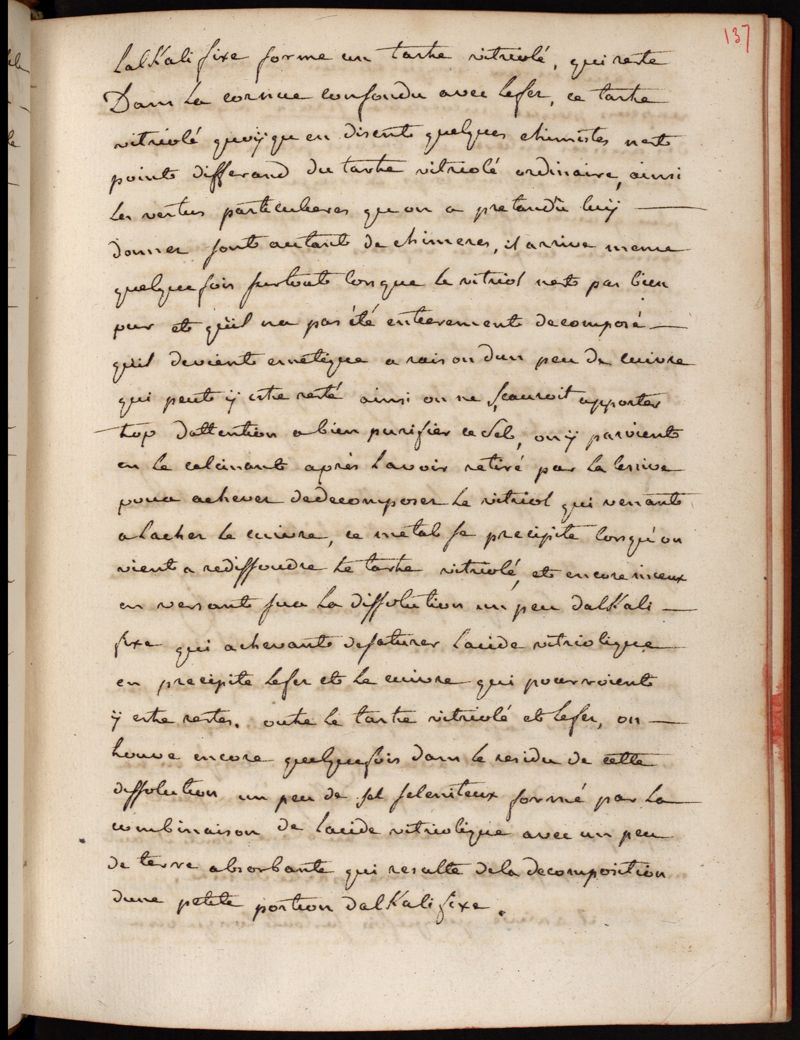 137
lalKali fixe forme un tartre vitriolé, qui reste
Dans La cornue confondu avec lefer, ce tartre
vitriolé quoÿque en disent quelques chimistes nest
point differand du tartre vitriolé ordinaire, ainsi
les vertus particulieres quon a pretandu luÿ —
donner sont autant de chimeres, il arrive meme
quelquefois surtout lorsque le vitriol nest pas bien
pur et qüil na pas été entierement decomposé —
qüil devient emetique a raison dun peu de cuivre
qui peut ÿ estre resté ainsi on ne sçauroit apporter
trop dattention a bien purifier ce sel, on ÿ parvient
en le calcinant après lavoir retiré par la lessive
pour achever dedecomposer le vitriol qui venant
a lacher le cuivre, ce metal se precipite lorsqu'on
vient a redissoudre le tartre vitriolé, et encore mieux
en versant sur la dissolution un peu dalKali —
fixe qui achevant desaturer lacide vitriolique
en precipite lefer et le cuivre qui pourroient
ÿ estre restes. outre le tartre vitriolé et lefer, on —
trouve encore quelquefois dans le residu de cette
dissolution un peu de sel seleniteux formé par la
combinaison de lacide vitriolique avec un peu
de terre absorbante qui resulte dela decomposition
dune petite portion dalKali fixe.